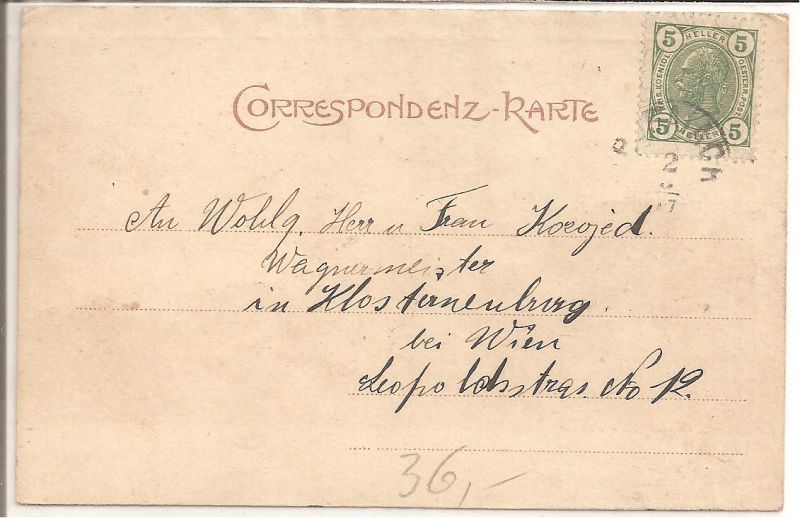 5 HELLER 5
KAIS. KOENIGL. OESTERR. POST
5 HELLER 5
CORRESPONDENZ-KARTE
An Wohlg. Herr u Frau Korojed.
Wagnermeister
in Klosterneuburg
bei Wien
Leopoldsstras. No 12.
36,-